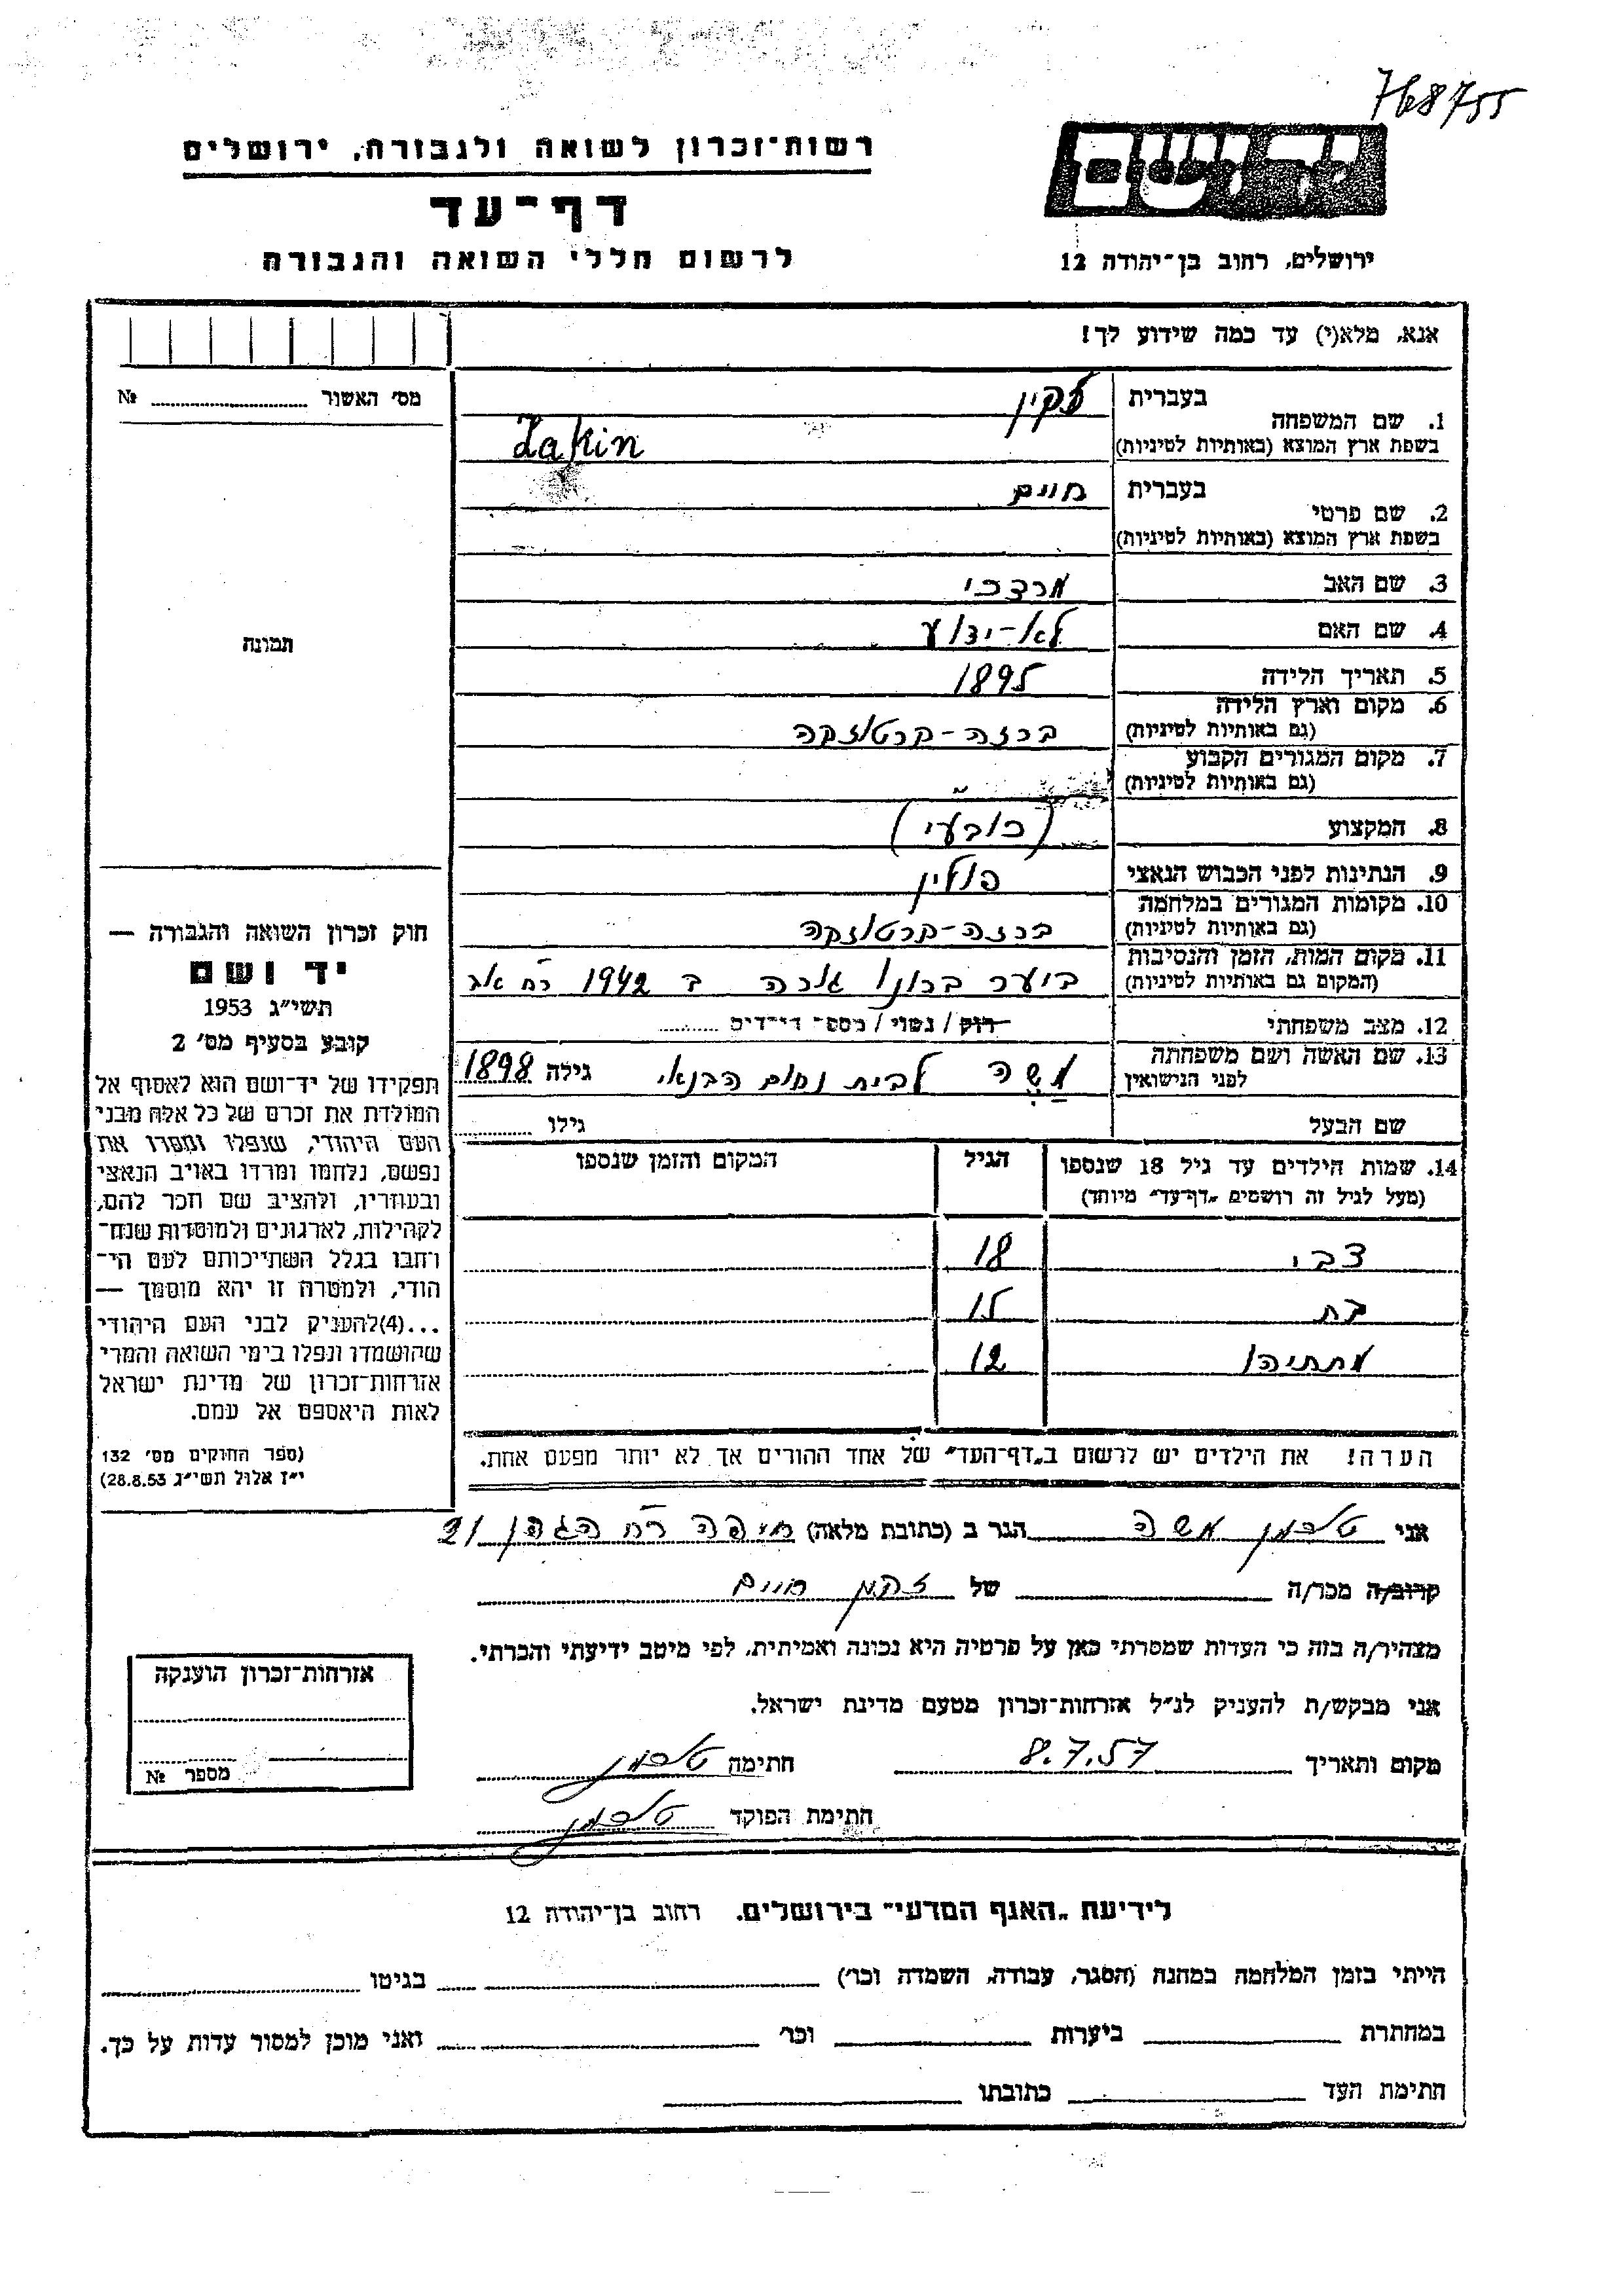 768755
רשות־זכרון לשואה ולגבורה, ירושלים
יד ושם
דף־עד
לרשום חללי השואה והגבורה
ירושלים, רחוב בן־יהודה 12
אנא, מלא(י) עד כמה שידוע לך!
מס׳ האשור № 
1. שם המשפחה
בעברית
בשפת ארץ המוצא (באותיות לטיניות)
Zakin
2. שם פרטי
בעברית חיים
בשפת ארץ המוצא (באותיות לטיניות)
3. שם האב מרדכי
4. שם האם לא-ידוע
תמונה
5. תאריך הלידה 1895
6. מקום וארץ הלידה
(גם באותיות לטיניות) ברזה-קרטוזקה
7. מקום המגורים הקבוע
(גם באותיות לטיניות)
8. המקצוע (כובעי)
9. הנתינות לפני הכבוש הנאצי פולין
10. מקומות המגורים במלחמה
(גם באותיות לטיניות) ברזה-קרטוזקה
11. מקום המות, הזמן והנסיבות
(המקום גם באותיות לטיניות) ביער ברונו גורה ב 1942 אב
12. מצב משפחתי רוק / נשוי / מספר ילדים
13. שם האשה ושם משפחתה
לפני הנישואין משה לבית נחום הבנאי גילה 1898
שם הבעל גילו
14. שמות הילדים עד גיל 18 שנספו
(מעל לגיל זה רושמים „דף־עד״ מיוחד)
הגיל
המקום והזמן שנספו
צבי 18
בת 15
מתתיהו 12
הערה! את הילדים יש לרשום ב„דף־העד״ של אחד ההורים אך לא יותר מפעם אחת.
חוק זכרון השואה והגבורה —
יד ושם
תשי״ג 1953
קובע בסעיף מס׳ 2
תפקידו של יד־ושם הוא לאסוף אל
המולדת את זכרם של כל אלה מבני
העם היהודי, שנפלו ומסרו את
נפשם, נלחמו ומרדו באויב הנאצי
ובעוזריו, ולהציב שם וזכר להם,
לקהילות, לארגונים ולמוסדות שנח־
רבו בגלל השתייכותם לעם הי־
הודי, ולמטרה זו יהא מוסמך —
...(4)להעניק לבני העם היהודי
שהושמדו ונפלו בימי השואה והמרי
אזרחות־זכרון של מדינת ישראל
לאות היאספם אל עמם.
(ספר החוקים מס׳ 132
י״ז אלול תשי״ג 28.8.53)
אני טוכמן משה הגר ב (כתובת מלאה) חיפה רח הגפן 21
קרוב/ה מכר/ה של חיים
מצהיר/ה בזה כי העדות שמסרתי כאן על פרטיה היא נכונה ואמיתית, לפי מיטב ידיעתי והכרתי.
אני מבקש/ת להעניק לנ״ל אזרחות־זכרון מטעם מדינת ישראל.
מקום ותאריך 8.7.57 חתימה טוכמן
חתימת הפוקד טוכמן
אזרחות־זכרון הוענקה
מספר №
לידיעת „האגף המדעי״ בירושלים, רחוב בן־יהודה 12
הייתי בזמן המלחמה במחנה (הסגר, עבודה, השמדה וכו׳) בגיטו
במחתרת ביערות וכו׳ ואני מוכן למסור עדות על כך.
חתימת העד כתובתו